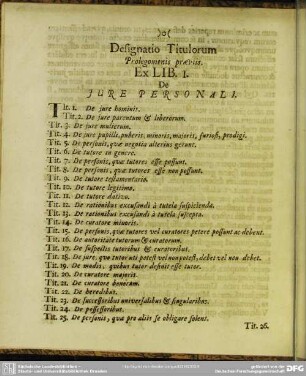 Designatio Titulorum
Prolegomenis præviis.
Ex LIB. I.
De
JURE PERSONALI.
Tit. 1. De jure hominis.
Tit. 2. De jure parentum & liberorum.
Tit. 3. De jure mulierum.
Tit. 4. De jure pupilli, puberis, minoris, majoris, furiosi, prodigi.
Tit. 5. De personis, quæ negotia alterius gerunt.
Tit. 6. De tutore in genere.
Tit. 7. De personis, quæ tutores esse possunt.
Tit. 8. De personis, quæ tutores esse non possunt.
Tit. 9. De tutore testamentario.
Tit. 10. De tutore legitimo.
Tit. 11. De tutore dativo.
Tit. 12. De rationibus excusandi à tutela suscipienda.
Tit. 13. De rationibus excusandi à tutela suscepta.
Tit. 14. De curatore minoris.
Tit. 15. De personis, quæ tutores vel curatores petere possunt ac debent.
Tit. 16. De autoritate tutorum & curatorum.
Tit. 17. De suspectis tutoribus & curatoribus.
Tit. 18. De jure, quo tutor uti potest vel non potest, debet vel non debet.
Tit. 19. De modis, quibus tutor desinit esse tutor.
Tit. 20. De curatore majoris.
Tit. 21. De curatore bonorum.
Tit. 22. De heredibus.
Tit. 23. De successoribus universalibus & singularibus.
Tit. 24. De possessoribus.
Tit. 25. De personis, quæ pro aliis se obligare solent.
Tit. 26.
DFG